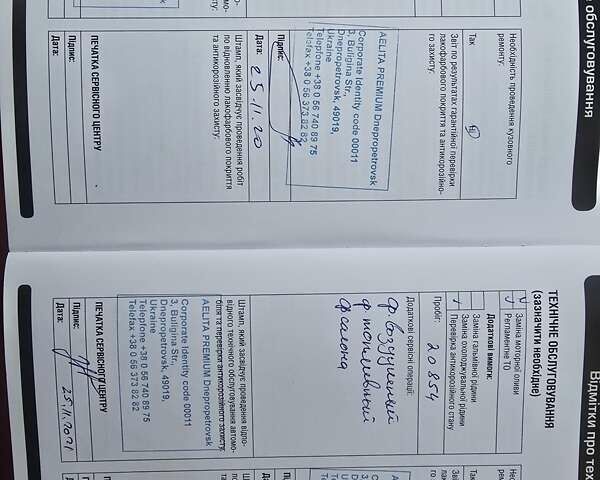 обслуговування
Необхідність проведення кузовного
ремонту:
Так
Ні
Звіт по результатах гарантійної перевірки
лакофарбового покриття та антикорозійно-
го захисту.
AELITA PREMIUM Dnepropetrovsk
Corporate Identity code 00011
3, Buligina Str.,
Dnepropetrovsk, 49019,
Ukraine
Telephone +38 0 56 740 89 75
Telefax +38 0 56 373 82 82
Підпис:
Дата:
25.11.20
Штамп, який засвідчує проведення робіт
по відновленню лакофарбового покриття
та антикорозійного захисту.
ПЕЧАТКА СЕРВІСНОГО ЦЕНТРУ
Підпис:
Дата:
Відмітки про тех
ТЕХНІЧНЕ ОБСЛУГОВУВАННЯ
(зазначити необхідне)
Заміна моторної оливи
Регламентне ТО
Додаткові вимоги:
Заміна гальмівної рідини
Заміна охолоджувальної рідини
Перевірка антикорозійного стану
Пробіг:
20854
Додаткові сервісні операції:
ф. воздушный
ф топливный
ф салона
Штамп, який засвідчує проведення відпо-
відного технічного обслуговування автомо-
біля та перевірки антикорозійного захисту.
AELITA PREMIUM Dnepropetrovsk
Corporate Identity code 00011
3, Buligina Str.,
Dnepropetrovsk, 49019,
Ukraine
Telephone +38 0 56 740 89 75
Telefax +38 0 56 373 82 82
ПЕЧАТКА СЕРВІСНОГО ЦЕНТРУ
Підпис:
Дата:
25.11.2021